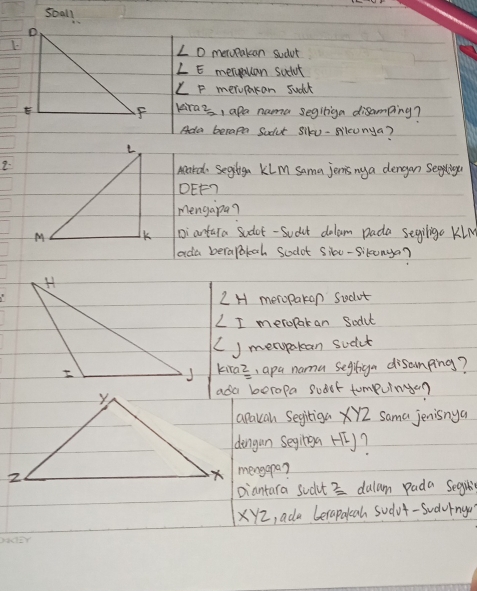 Soal!!
1.
D
E
F
∠ D merupakan sudut
∠ E merupakan sudut
∠ F merupakan sudut
kira2, apa nama segitiga disamping?
Ada berapa sudut siku-sikunya?
2.
L
M
K
Apakah segitiga KLM sama jenisnya dengan segitiga
DEF?
Mengapa?
Diantara sudut-sudut dalam pada segitiga KLM
ada berapakah sudut siku-sikunya?
H
I
J
∠ H merupakan sudut
∠ I merupakan sudut
∠ J merupakan sudut
kira2, apa nama segitiga disamping?
ada berapa sudut tumpulnya?
Y
Z
X
apakah segitiga XYZ sama jenisnya
dengan segitiga HIJ?
mengapa?
Diantara sudut2 dalam pada
XYZ, ada berapakah sudut-sudutnya?